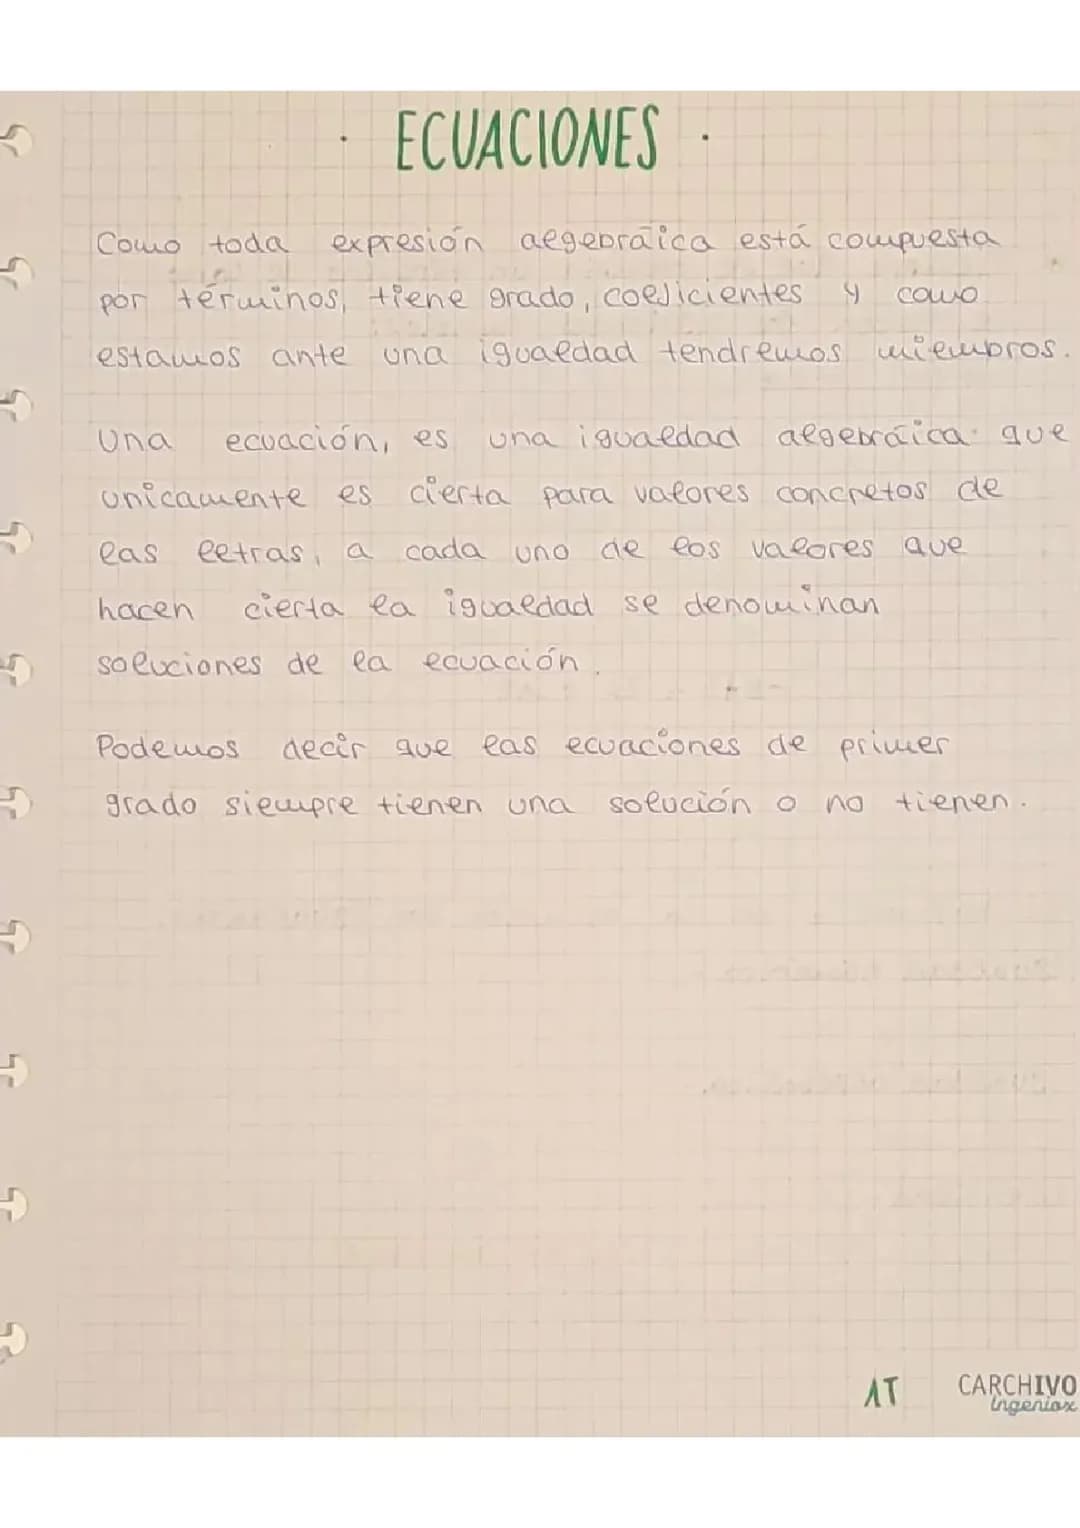 · ECUACIONES ·
Como toda expresión algebráica está compuesta
por términos, tiene grado, coeficientes y como
estamos ante una igualdad tendremos miembros.
Una ecuación, es una igualdad algebráica que
unicamente es cierta para valores concretos de
las letras, a cada uno de los valores que
hacen cierta la igualdad se denominan
soluciones de la ecuación.
Podemos decir que las ecuaciones de primer
grado siempre tienen una solución o no tienen.
AT
CARCHIVO
ingeniox